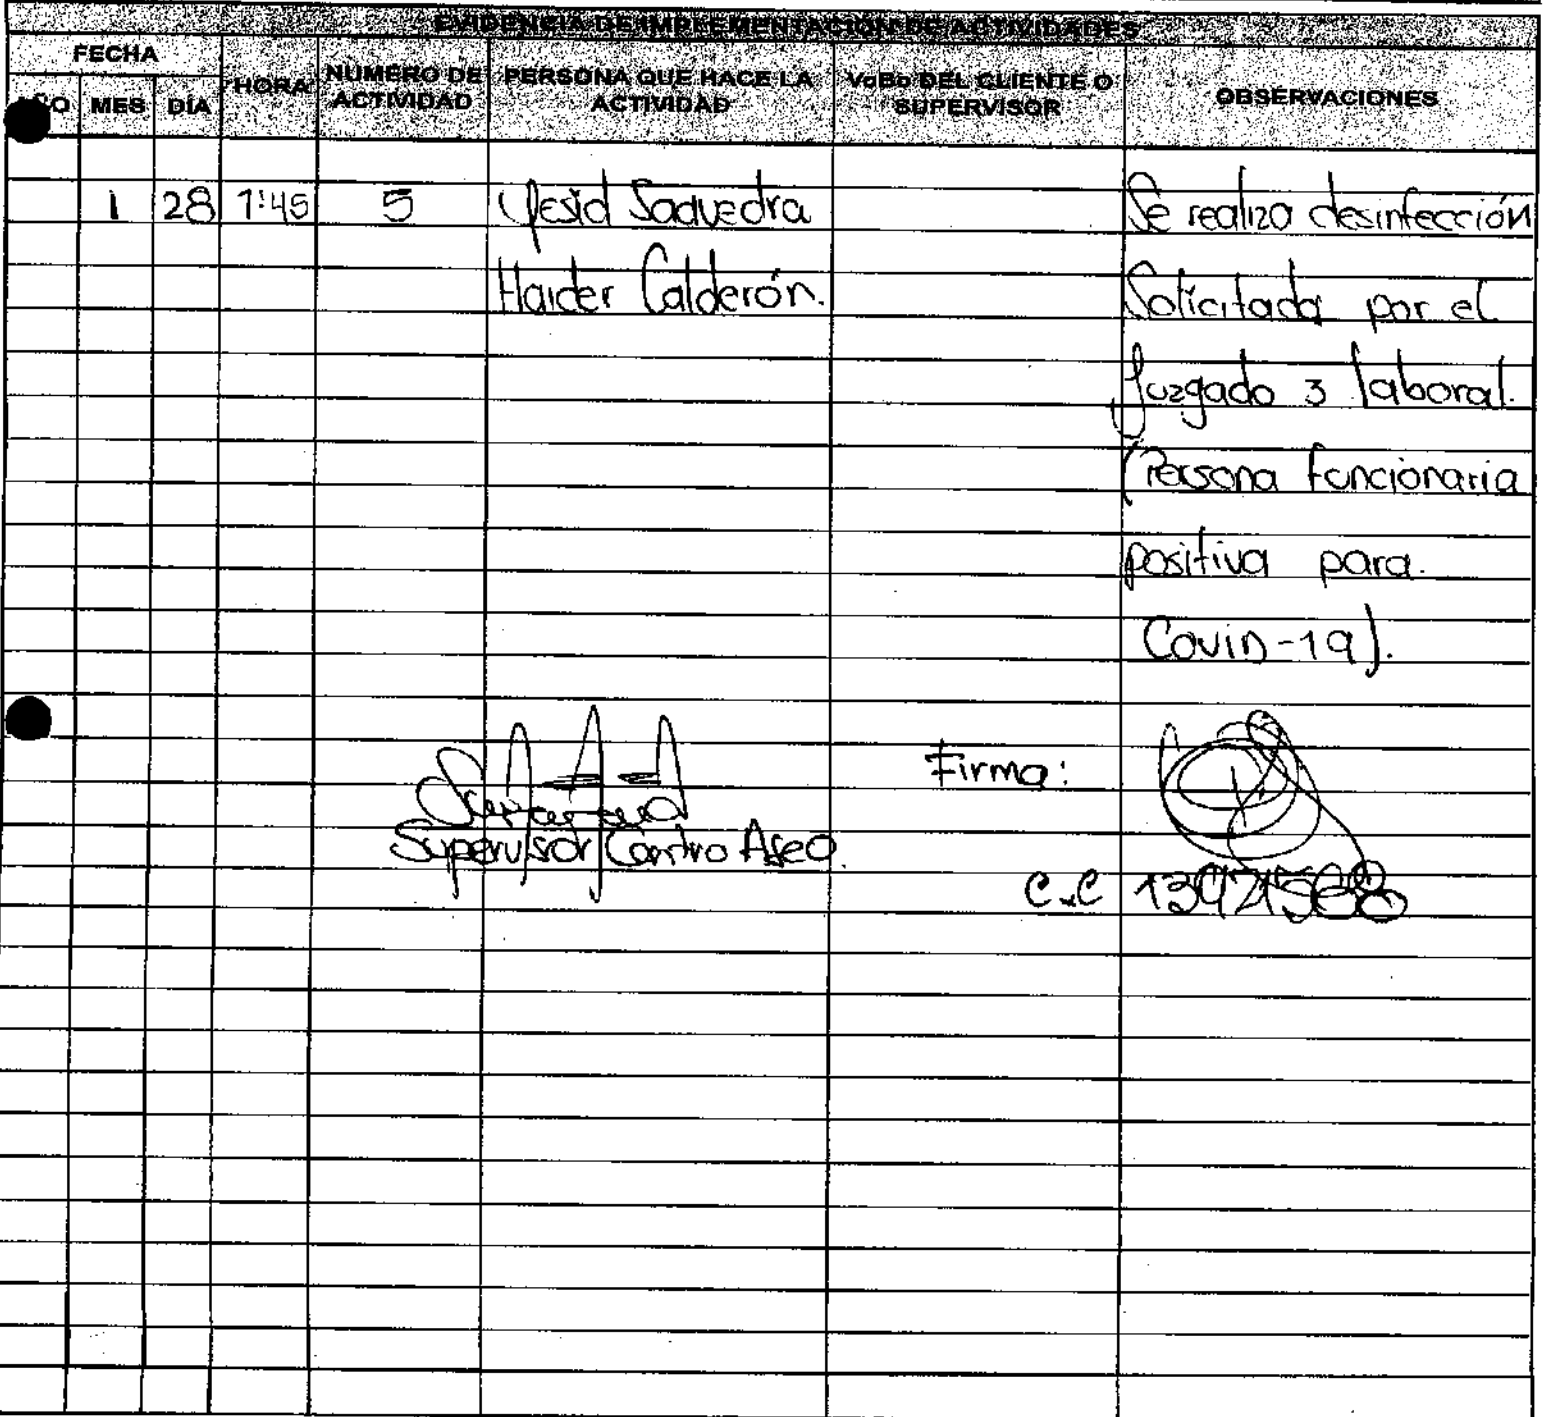 EVIDENCIA DE IMPLEMENTACIÓN DE ACTIVIDADES
FECHA
HORA
NÚMERO DE ACTIVIDAD
PERSONA QUE HACE LA ACTIVIDAD
VoBo DEL CLIENTE O SUPERVISOR
OBSERVACIONES
MES DÍA
1 28 1:45 5 Yesid Saavedra Se realizo desinfección
Haider Calderón. Solicitada por el
Juzgado 3 laboral.
(Persona funcionaria
positiva para.
Covid-19).
Firma:
Supervisor Aseo.
C.C